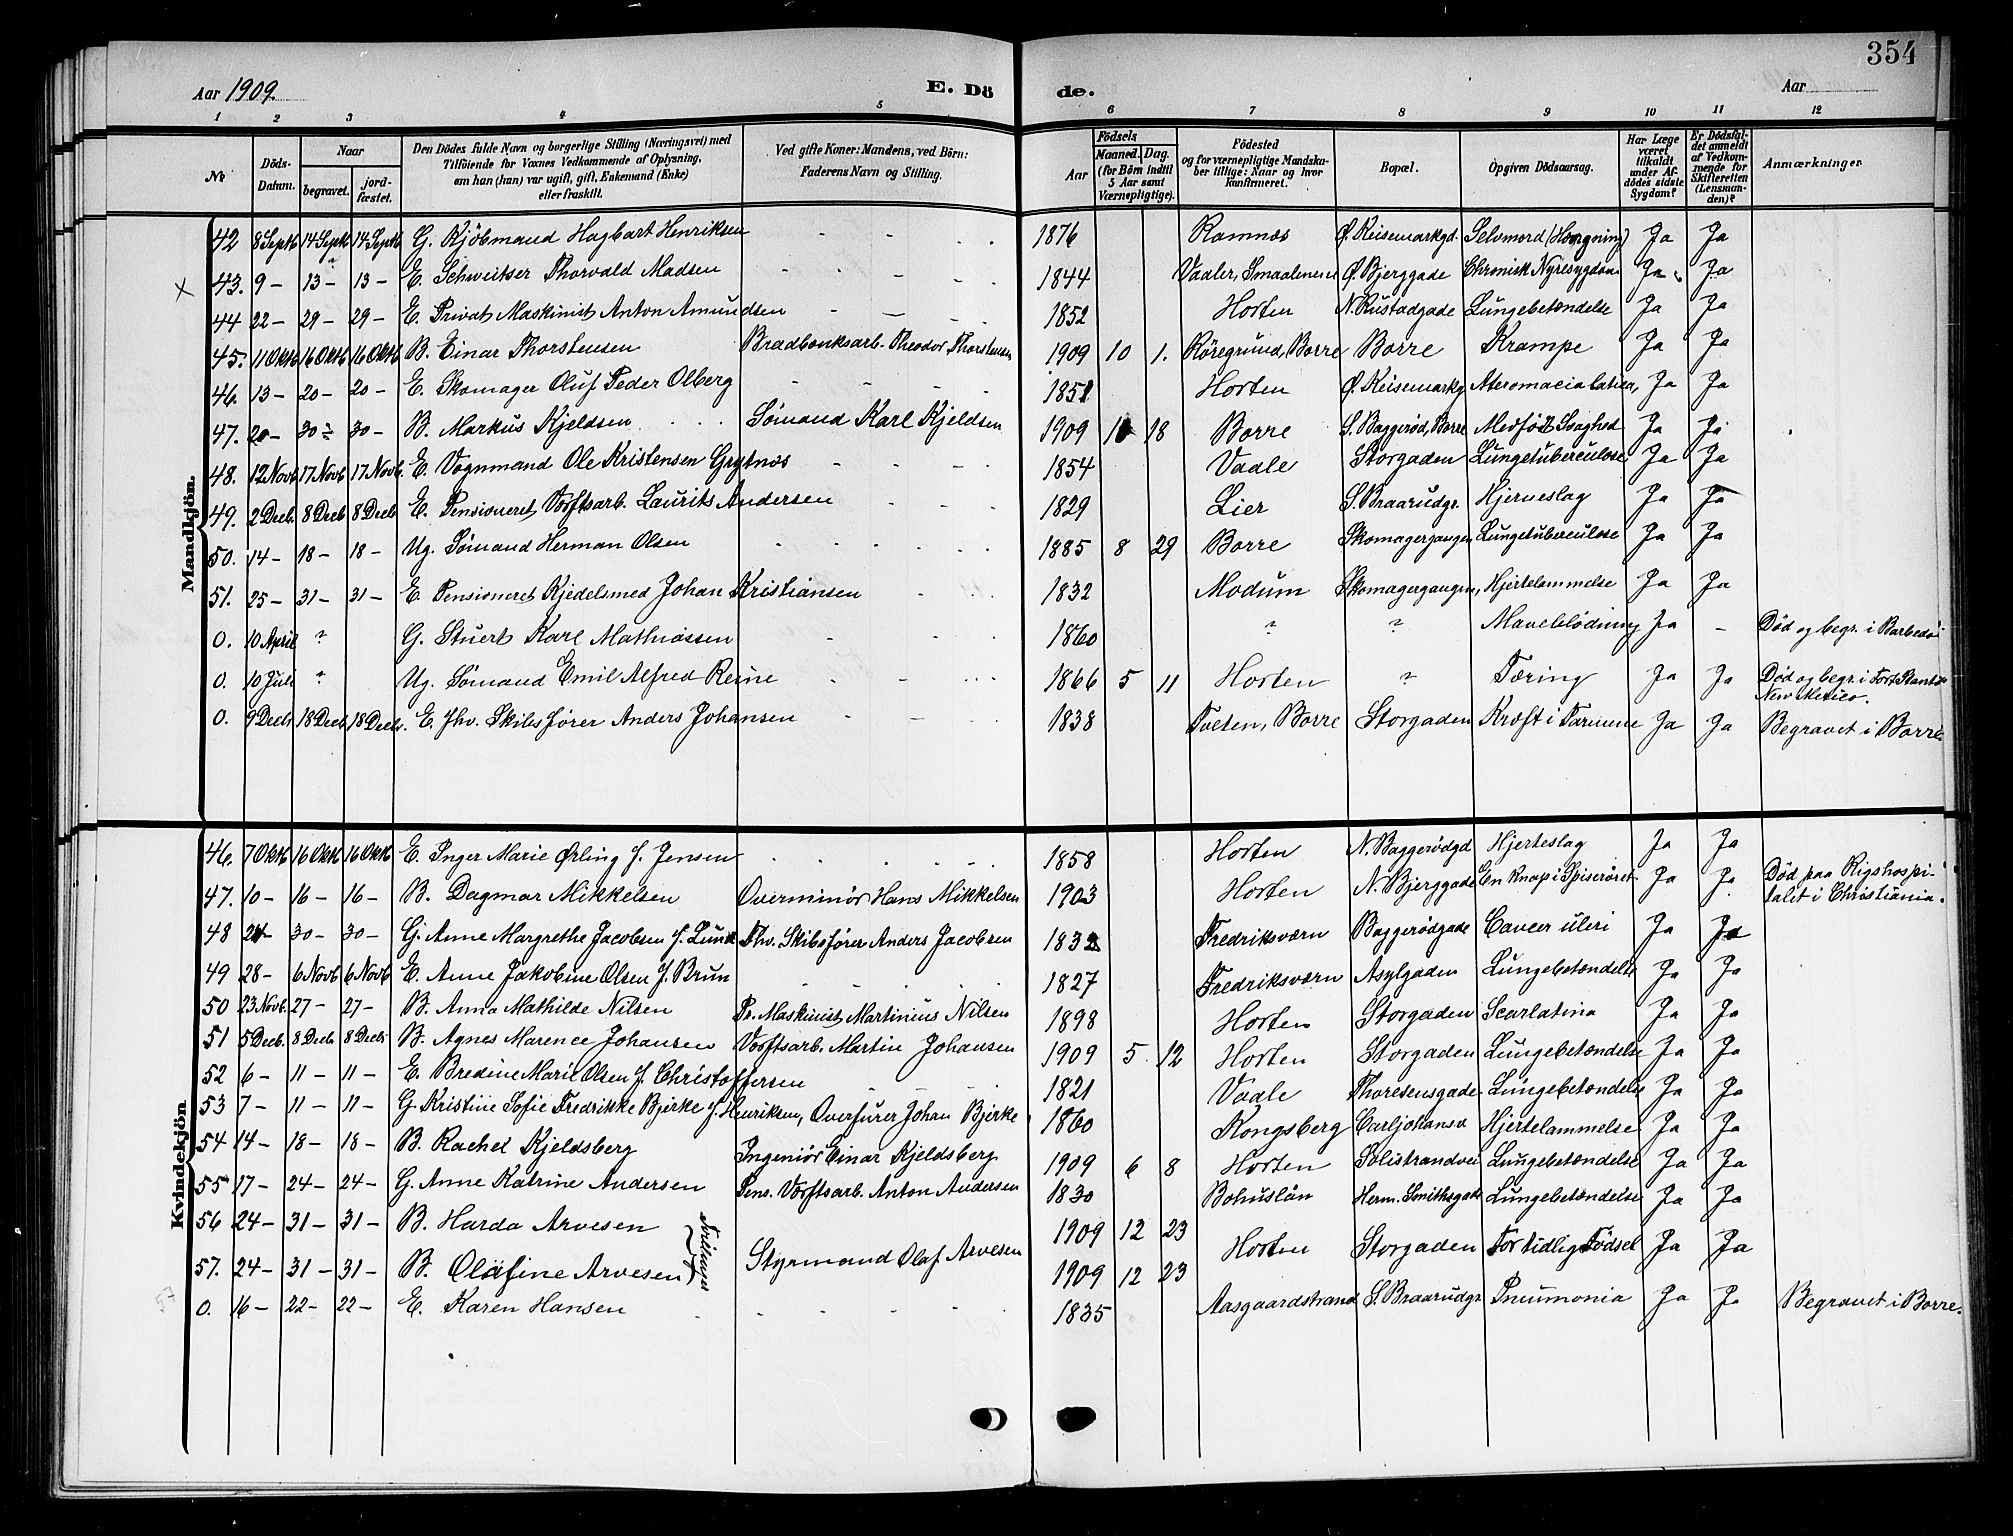 354
Aar 1909. E. Dö de. Aar
1 2 3 4 5 6 7 8 9 10 11 12
№ Döds-Datum. Naar begravet. jordfæstet. Den Dödes fulde Navn og borgerlige Stilling (Næringsvei) med Tilföiende for Voxnes Vedkommende af Oplysning, om han (hun) var ugift, gift, Enkemand (Enke) eller fraskilt. Ved gifte Koner: Mandens, ved Börn: Faderens Navn og Stilling. Födsels Aar Maaned. Dag. (for Börn indtil 5 Aar samt Værnepligtige). Födested og for værnepligtige Mandskaber tillige: Naar og hvor konfirmeret. Bopæl. Opgiven Dödsaarsag. Har Læge været tilkaldt under Afdödes sidste Sygdom? Er Dödsfaldet anmeldt af Vedkommende for Skifteretten (Lensmanden)? Anmærkninger
Mandkjön.
42 8 Septb 14 Septb 14 Septb G. Kjöbmand Hagbart Henriksen - - - 1876 Ramnæs Ø. Keisemarkgd. Selvmord (Hængning) Ja Ja
x 43. 9 - 13 - 13 - E. Schweitser Thorvald Madsen - - - 1844 Vaaler, Smaalenene Ø. Bjerggade Chronisk Nyresygdom Ja Ja
44 22 - 29 - 29 - E. Privat Maskinist Anton Amundsen - - - 1852 Horten N. Rustadgade Lungebetændelse Ja Ja
45. 11 Oktb 16 Oktb 16 Oktb B. Einar Thorstensen Brædbanksarb. Theodor Thorstensen 1909 10 1. Röregrund, Borre Borre Krampe Ja Ja
46. 13 - 20 - 20 - E. Skomager Oluf Peder Olberg - - - 1851 Horten Ø. Keisemarkg Ja Ja
47. 20 - 30 - 30 - B. Markus Kjeldsen Sømand Karl Kjeldsen 1909 10 18 Borre S. Baggerød, Borre Medfød Svaghed Ja Ja
48. 12 Novb 17 Novb 17 Novb. E. Vognmand Ole Kristensen Grytnæs - - - 1854 Vaale Storgaden Lungetuberculose Ja Ja
49. 2 Decb. 8 Decb 8 Decb E. Pensioneret Værftsarb. Laurits Andersen - - - 1829 Lier S. Braarudgt. Hjerneslag Ja Ja
50. 14 - 18 - 18 - Ug. Sømand Herman Olsen - - - 1885 8 29 Borre Skomagergangen Lungetuberculose Ja Ja
51. 25 - 31 - 31 - E. Pensioneret Kjedelsmed Johan Kristiansen - - - 1832 Modum Skomagergangen, Hjertelammelse Ja Ja
0. 10 April ? G. Stuert Karl Mathiassen - - - 1860 ? ? Maveblödning Ja - Död og begr. i Barbedos
0. 10 Juli ? Ug. Sömand Emil Alfred Reine - - - 1866 5 11 Horten ? Tæring Ja Ja Död og begr. i Fort Stanton New Mexico.
0. 9 Decb 18 Decb 18 Decb. E. fhv. Skibsfører Anders Johansen - - - 1838 Tveten, Borre Storgaden Kræft i Tarmene Ja Ja Begravet i Borre.
Kvindekjön
46. 7 Oktb 16 Oktb 16 Oktb E. Inger Marie Ørling f. Jensen - - - 1858 Horten N. Baggerödgd Hjerteslag Ja Ja
47. 10 - 16 - 16 - B. Dagmar Mikkelsen Overminör Hans Mikkelsen 1903 Horten N. Bjerggade En Knap i Spiseröret Ja Ja Död paa Rigshospitalet i Christiania.
48 24 - 30 - 30 - G. Anne Margrethe Jacobsen f. Lund Fhv. Skibsfører Anders Jacobsen 1832 Fredriksværn Baggerödgade Cancer uteri Ja Ja
49 28 - 6 Novb 6 Novb E. Anne Jakobine Olsen f. Brun - - - 1827 Fredriksværn Asylgaden Lungebetændelse Ja Ja
50 23 Novb. 27 - 27 - B. Anna Mathilde Nilsen Pr. Maskinist Martinius Nilsen 1898 Horten Storgaden Scarlatina Ja Ja
51 5 Decb. 8 Decb 8 Decb B. Agnes Marence Johansen Værftsarb. Martin Johansen 1909 5 12 Horten Storgaden Lungebetændelse Ja Ja
52 6 - 11 - 11 - E. Bredine Marie Olsen f. Christoffersen - - - 1821 Vaale Thoresensgade Lungebetændelse Ja Ja
53 7 - 11 - 11 - G. Kristine Sofie Fredrikke Bjerke f. Henriksen, Overfurer Johan Bjerke 1860 Kongsberg Carljohansv Hjertelammelse Ja Ja
54 14 - 18 - 18 - B. Rachel Kjeldsberg Ingeniör Einar Kjeldsberg 1909 6 8 Horten Solistrandvei Lungebetændelse Ja Ja
55 17 - 24 - 24 - G. Anne Katrine Andersen Pens. Værftsarb. Anton Andersen 1830 Bohuslän Herm. Smithsgade Lungebetændelse Ja Ja
56 24 - 31 - 31 - B. Harda Arvesen Tvillinger Styrmand Olaf Arvesen 1909 12 23 Horten Storgaden For tidlig Födsel Ja Ja
57. 24 - 31 - 31 - B. Olafine Arvesen 1909 12 23
57 0. 16 - 22 - 22 - E. Karen Hansen - - - 1835 Aasgaardstrand S. Braarudgt Pneumonia Ja Ja Begravet i Borre.